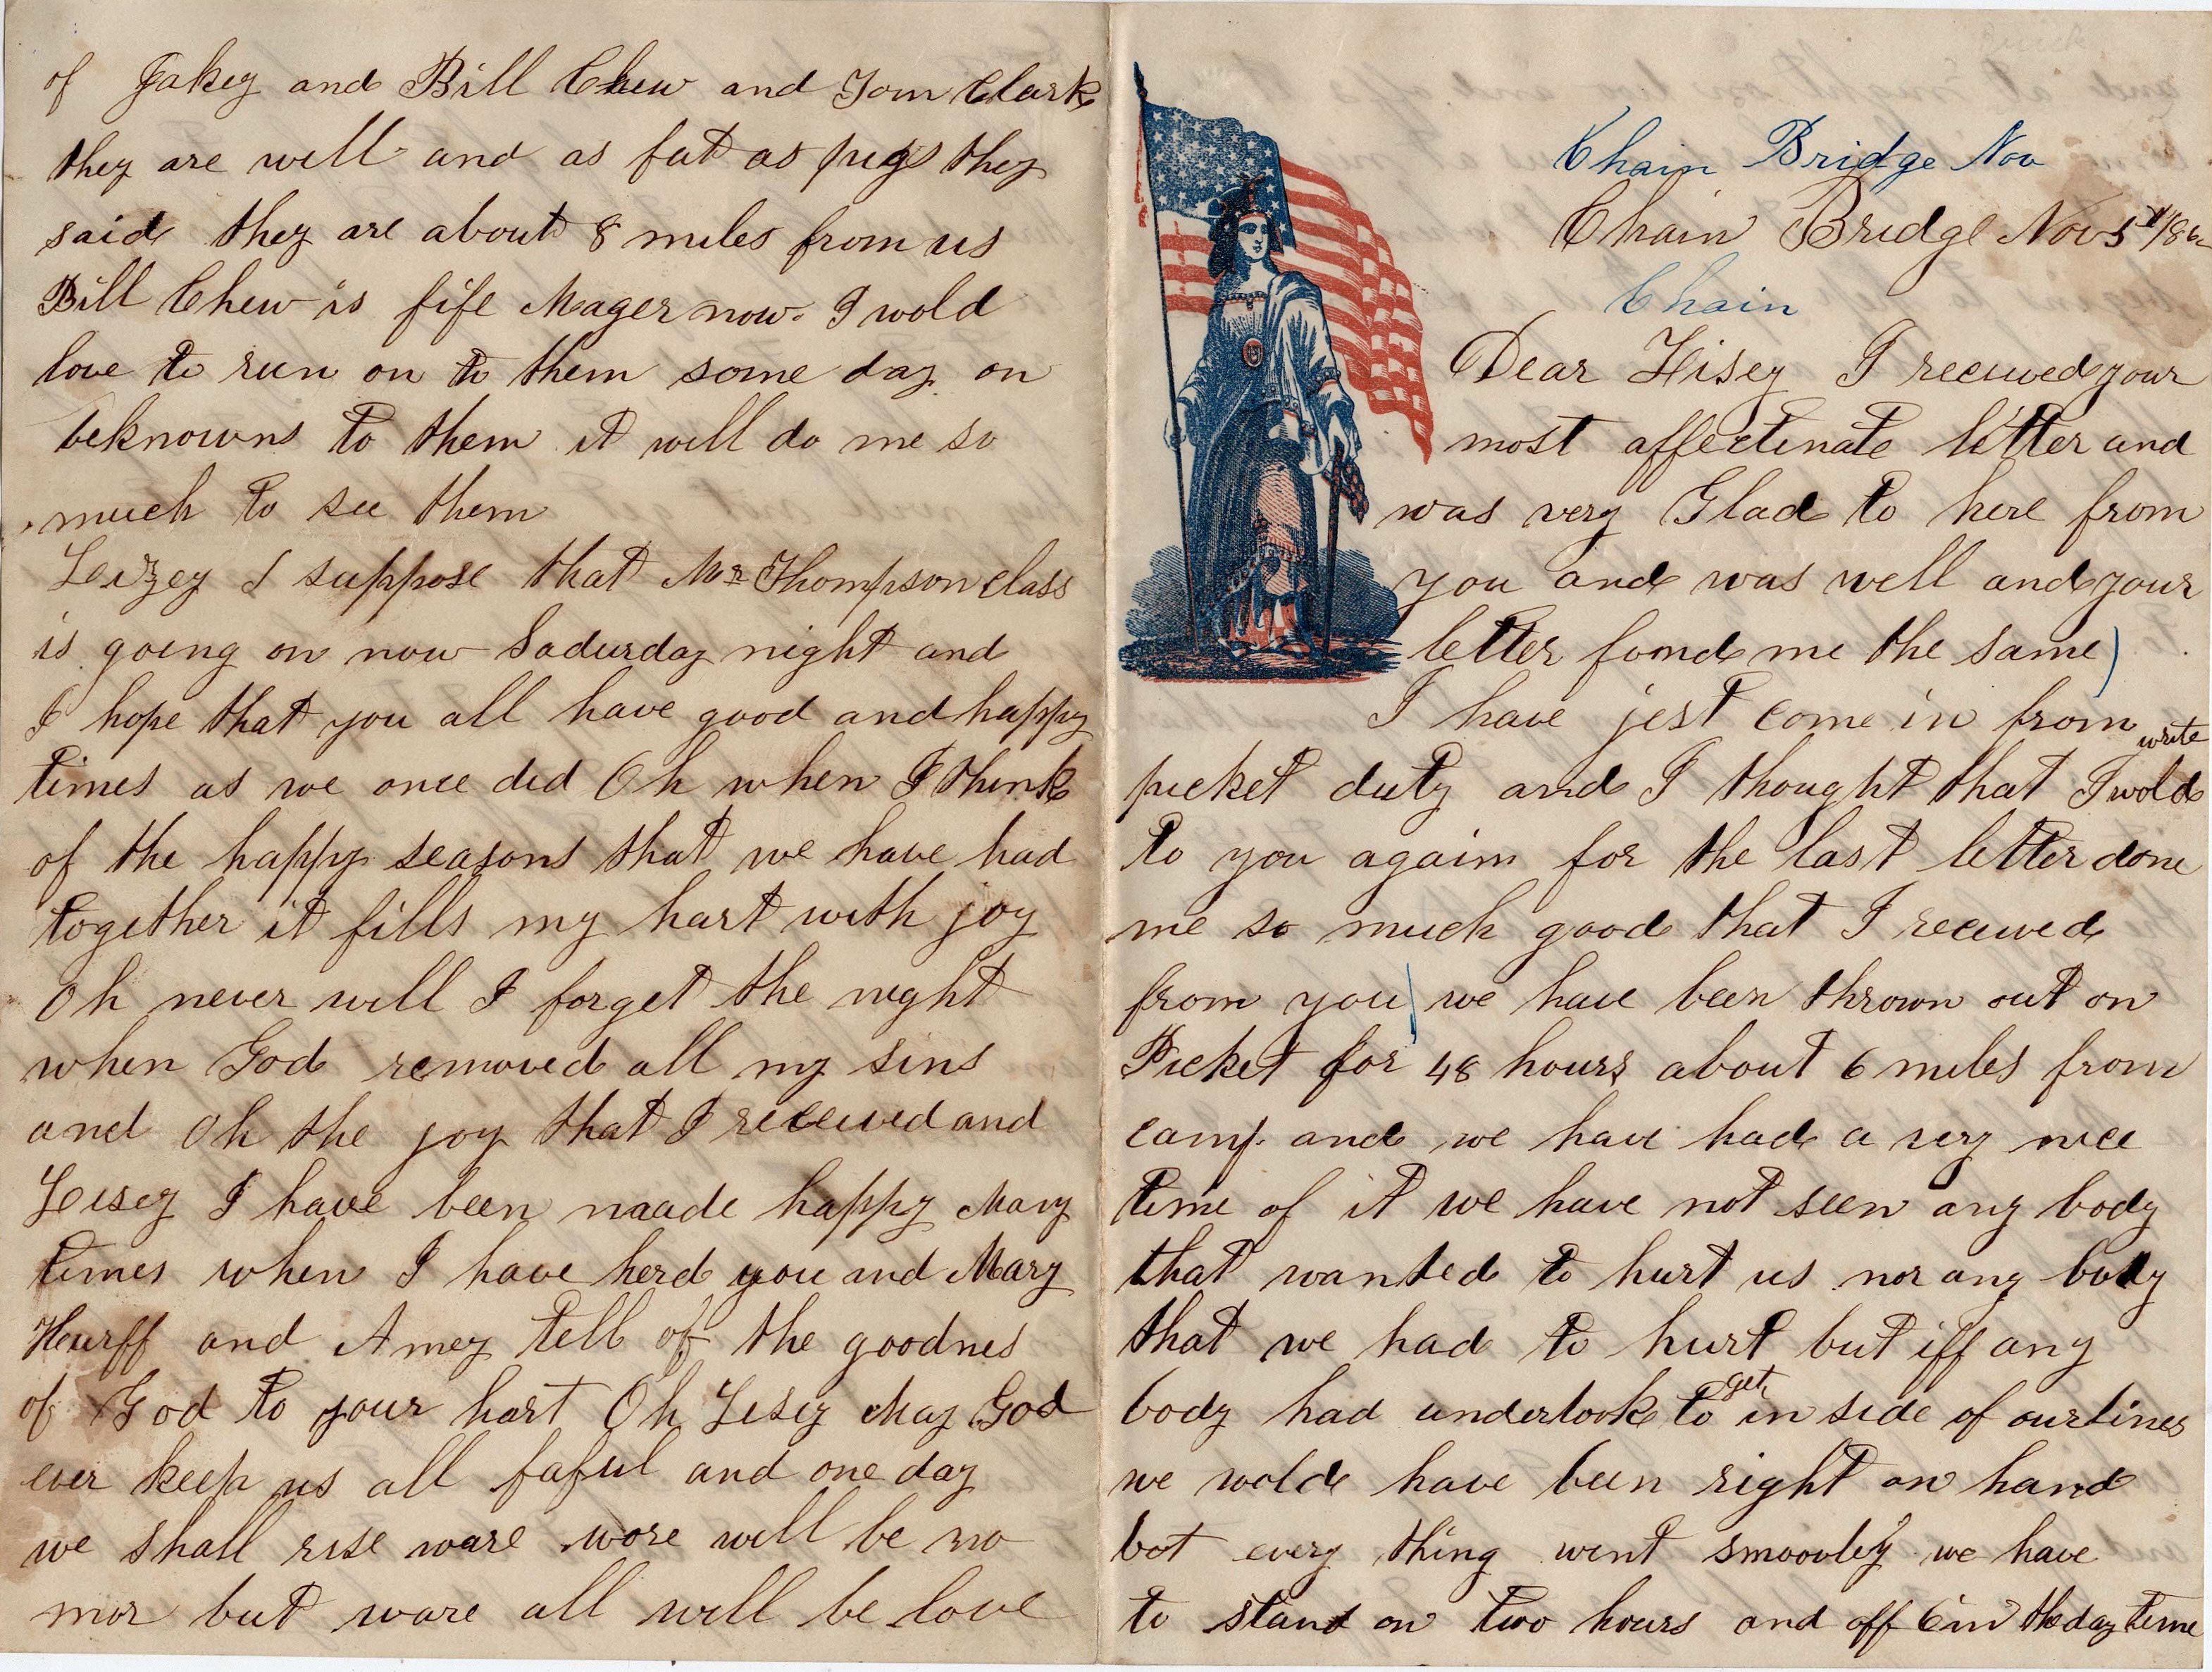 of Jakey and Bill Chew and Tom Clark
they are well and as fat as pigs they
said they are about 8 miles from us
Bill Chew is fife Mager now. I wold
love to run on to them some day on
beknowns to them it will do me so
much to see them
Leizey I suppose that Mr Thompson class
is going on now Saturday night and
I hope that you all have good and happy
times as we once did Oh when I think
of the happy seasons that we have had
together it fills my hart with joy
Oh never will I forget the night
when God removed all my sins
and Oh the joy that I received and
Leisey I have been maade happy Many
times when I have herd you and Mary
Hurff and Amey tell of the goodnes
of God to your hart Oh Leisey May God
ever keep us all faful and one day
we shall rise ware wore will be no
mor but ware all will be love
Chain Bridge Nov
Chain Bridge Nov 5 186
Chain
Dear Lisey I received your
most affectinate letter and
was very Glad to here from
you and was well and your
letter fomd me the same)
I have jest come in from
write
picket duty and I thought that I wold
to you again for the last letter done
me so much good that I received
from you) we have been thrown out on
Picket for 48 hours about 6 miles from
camp. and we have had a very nice
time of it we have not seen any body
that wanted to hurt us nor any body
that we had to hurt but iff any
get
body had undertook to in side of our lines
we wolde have been right on hand
bot every thing went smoovley we have
to stand on two hours and off 6 in the day time